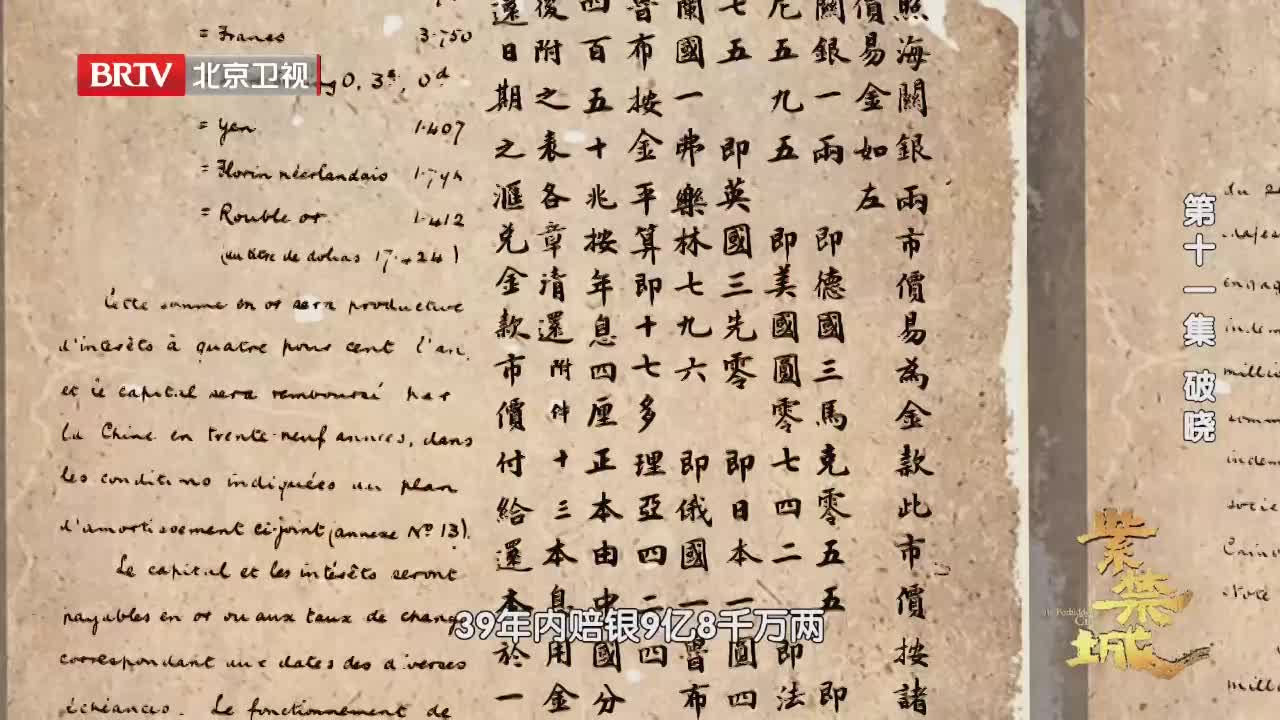 BRTV 北京卫视
= Francs 3.750
0, 3ˢ, 0ᵈ
= Yen 1.407
= Florin néerlandais 1.796
= Rouble or 1.412
(au titre de dolias 17.424)
Cette somme en or sera productive
d'intérêts à quatre pour cent l'an,
et le capital sera remboursé par
la Chine en trente-neuf années, dans
les conditions indiquées au plan
d'amortissement ci-joint (annexe Nº 13).
Le capital et les intérêts seront
payables en or ou aux taux de change
correspondant aux dates des diverses
échéances. Le fonctionnement de
照海關銀兩市價易為金款此市價按諸
價易金如左
關銀一兩 即德國三馬克零五五 即
尼五九五 即美國圓零七四二 即法
七五 即英國三先零 即日本一圓四
蘭國一弗樂林七九六 即俄國一魯布
魯布按金平算即十七多理亞四二四
四百五十兆按年息四厘正本由中國分
後附之表各章清還附件十三本息用金
還日期之滙兌金款市價付給還本於一
第十一集 破晓
紫禁城
39年内赔银9亿8千万两